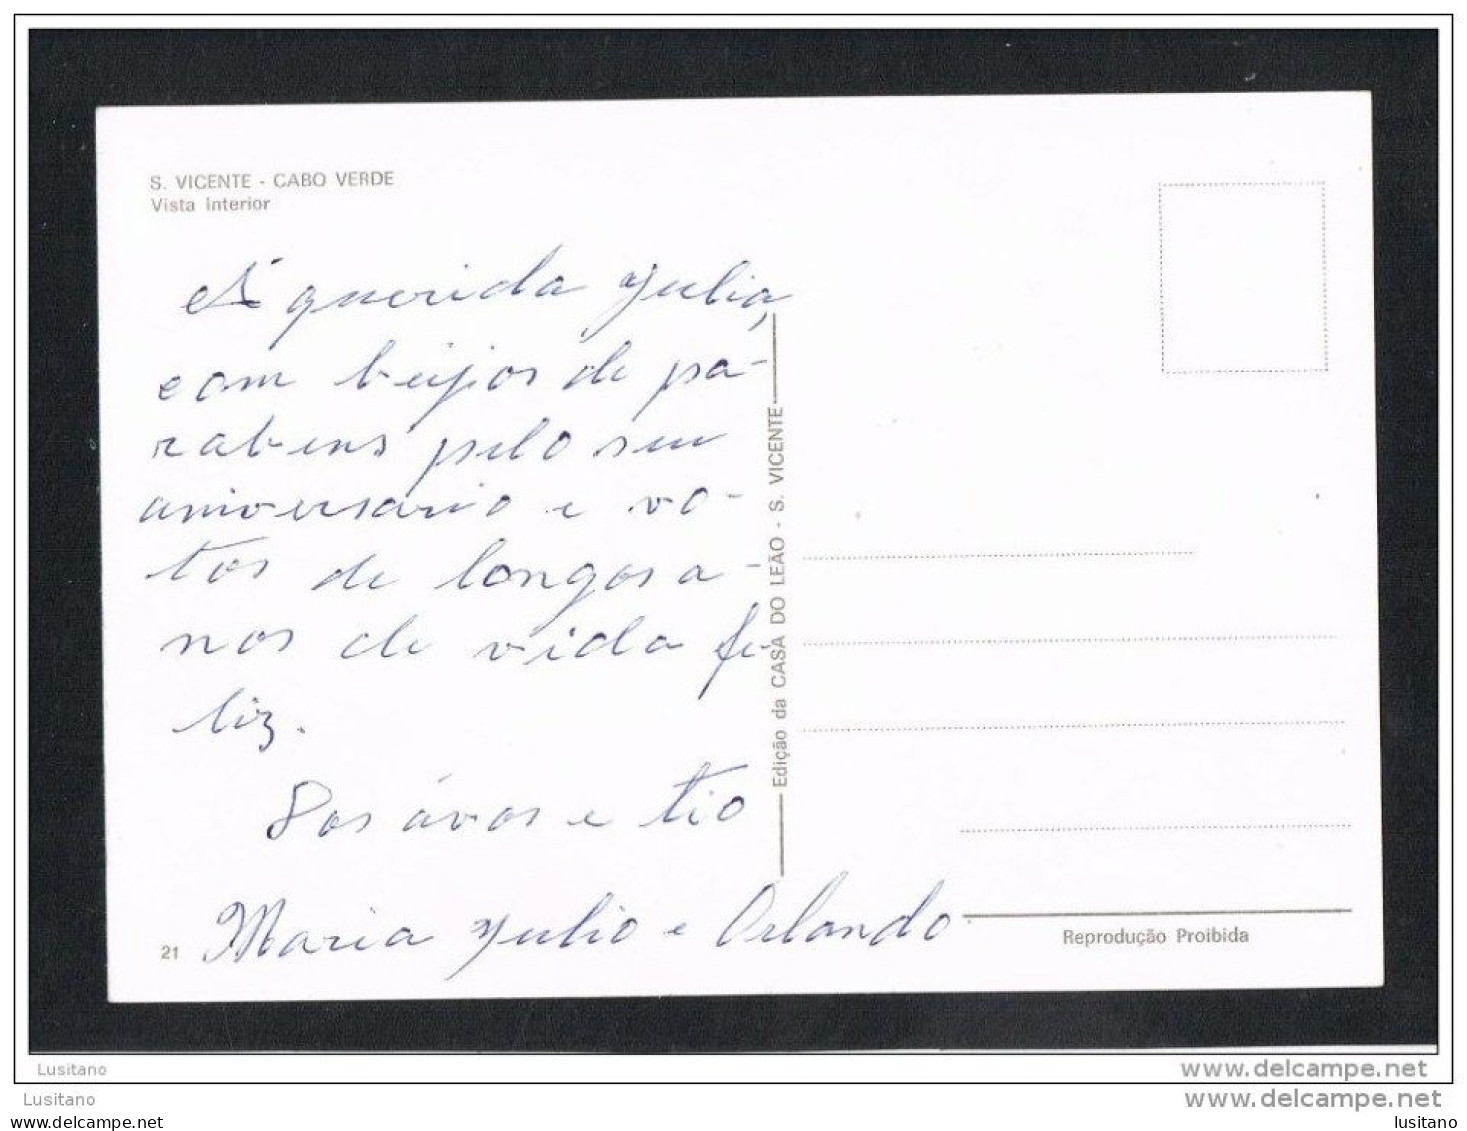 S. VICENTE - CABO VERDE
Vista Interior
À querida Julia,
com beijos de pa-
rabens pelo seu
aniversario e vo-
tos de longos a-
nos de vida fe-
liz.
Dos ávos e tio
Maria Julio e Orlando
21
Edição da CASA DO LEÃO - S. VICENTE
Reprodução Proibida
Lusitano
www.delcampe.net
Lusitano
www.delcampe.net
lusitano
lusitano